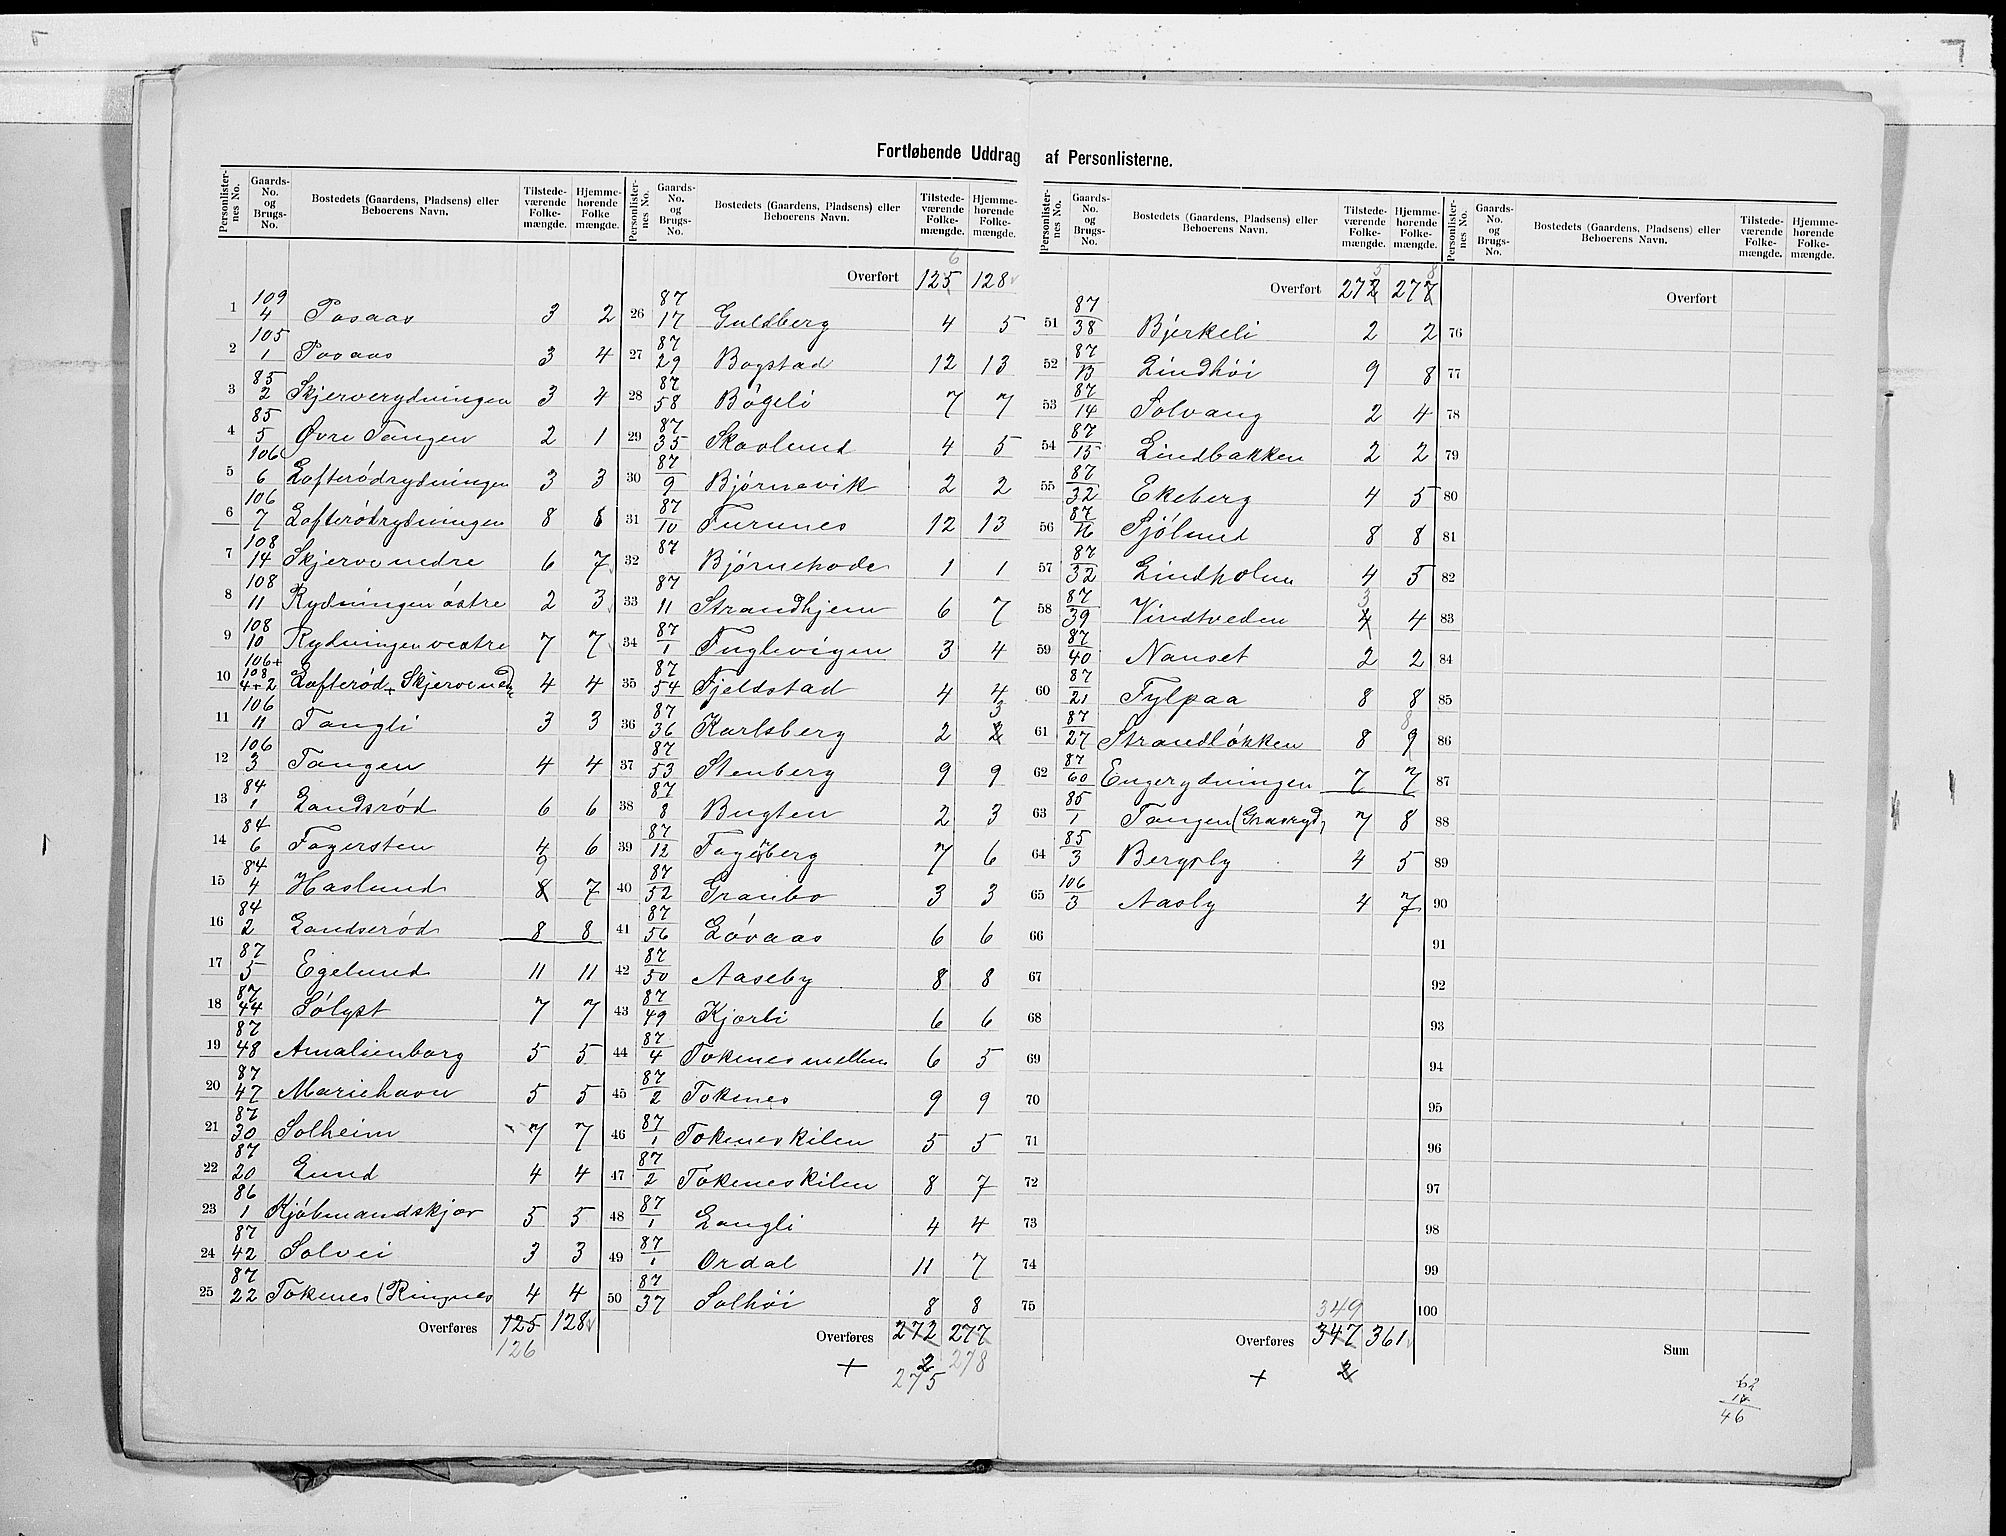 Fortløbende Uddrag af Personlisterne.
Personlister-nes No. Gaards-No. og Brugs-No. Bostedets (Gaardens, Pladsens) eller Beboerens Navn. Tilstede-værende Folke-mængde. Hjemme-hørende Folke mængde.
1 109/4 Posaas 3 2
2 105/1 Posaas 3 4
3 85/2 Skjerverydningen 3 4
4 85/5 Øvre Tangen 2 1
5 106/6 Lofterødrydningen 3 3
6 106/7 Lofterødrydningen 8 8
7 108/14 Skjerve nedre 6 7
8 108/11 Rydningen østre 2 3
9 108/10 Rydningen vestre 7 7
10 106+108/4+2 Lofterød + Skjerve ned 4 4
11 106/11 Tangli 3 3
12 106/3 Tangen 4 4
13 84/1 Landsrød 6 6
14 84/6 Fagersten 4 6
15 84/4 Haslund 8 9 7
16 84/2 Landserød 8 8
17 87/5 Egelund 11 11
18 87/44 Sølyst 7 7
19 87/48 Amalienborg 5 5
20 87/47 Mariehavn 5 5
21 87/30 Solheim 7 7
22 87/20 Lund 4 4
23 86/1 Kjøbmandskjær 5 5
24 87/42 Solvei 3 3
25 87/22 Tokenes (Ringnes 4 4
Overføres 125 128
126
Personlister-nes No. Gaards-No. og Brugs-No. Bostedets (Gaardens, Pladsens) eller Beboerens Navn. Tilstede-værende Folke-mængde. Hjemme-hørende Folke-mængde.
Overført 125 6 128
26 87/17 Guldberg 4 5
27 87/29 Bogstad 12 13
28 87/58 Bøgeli 7 7
29 87/35 Skovlund 4 5
30 87/9 Bjørnevik 2 2
31 87/10 Furunes 12 13
32 87 Bjørnehode 1 1
33 87/11 Strandhjem 6 7
34 87/1 Fuglevigen 3 4
35 87/54 Fjeldstad 4 4
36 87/36 Karlsberg 2 2 3
37 87/53 Stenberg 9 9
38 87/8 Bugten 2 3
39 87/12 Fagerberg 7 6
40 87/52 Granbo 3 3
41 87/56 Løvaas 6 6
42 87/50 Aaseby 8 8
43 87/49 Kjærli 6 6
44 87/4 Tokenes mellem 6 5
45 87/2 Tokenes 9 9
46 87/1 Tokeneskilen 5 5
47 87/2 Tokeneskilen 8 7
48 87/1 Langli 4 4
49 87/1 Ordal 11 7
50 87/37 Solhøi 8 8
Overføres 272 277
+ 2 278
275
Personlister-nes No. Gaards-No. og Brugs-No. Bostedets (Gaardens, Pladsens) eller Beboerens Navn. Tilstede-værende Folke-mængde. Hjemme-hørende Folke-mængde.
Overført 272 5 277 8
51 87/38 Bjerkeli 2 2
52 87/13 Lindhøi 9 8
53 87/14 Solvang 2 4
54 87/15 Lindbakken 2 2
55 87/32 Ekeberg 4 5
56 87/16 Sjølund 8 8
57 87/32 Lindholm 4 5
58 87/39 Vindtveden 4 3 4
59 87/40 Nanset 2 2
60 87/21 Fylpaa 8 8
61 87/27 Strandløkken 8 9 8
62 87/60 Engerydningen 7 7
63 85/1 Tangen (Grasryd) 7 8
64 85/3 Bergsly 4 5
65 106/3 Aasly 4 7
66
67
68
69
70
71
72
73
74
75
349
Overføres 347 361
+ 2
Personlister-nes No. Gaards-No. og Brugs-No. Bostedets (Gaardens, Pladsens) eller Beboerens Navn. Tilstede-værende Folke-mængde. Hjemme-hørende Folke-mængde.
Overført
76
77
78
79
80
81
82
83
84
85
86
87
88
89
90
91
92
93
94
95
96
97
98
99
100
Sum
62
46